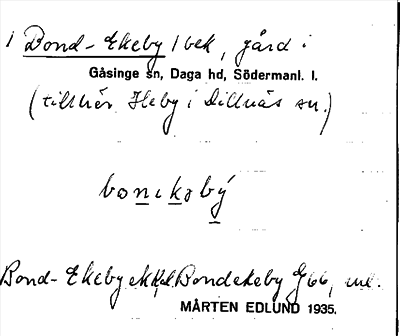 1 Bond-Ekeby 1 bek, gård i
Gåsinge sn, Daga hd, Södermanl. l.
(tillhör Heby i Dillnäs sn.)
bonɩkəbý
Bond-Ekeby Bondekeby G 66,
MÅRTEN EDLUND 1935.